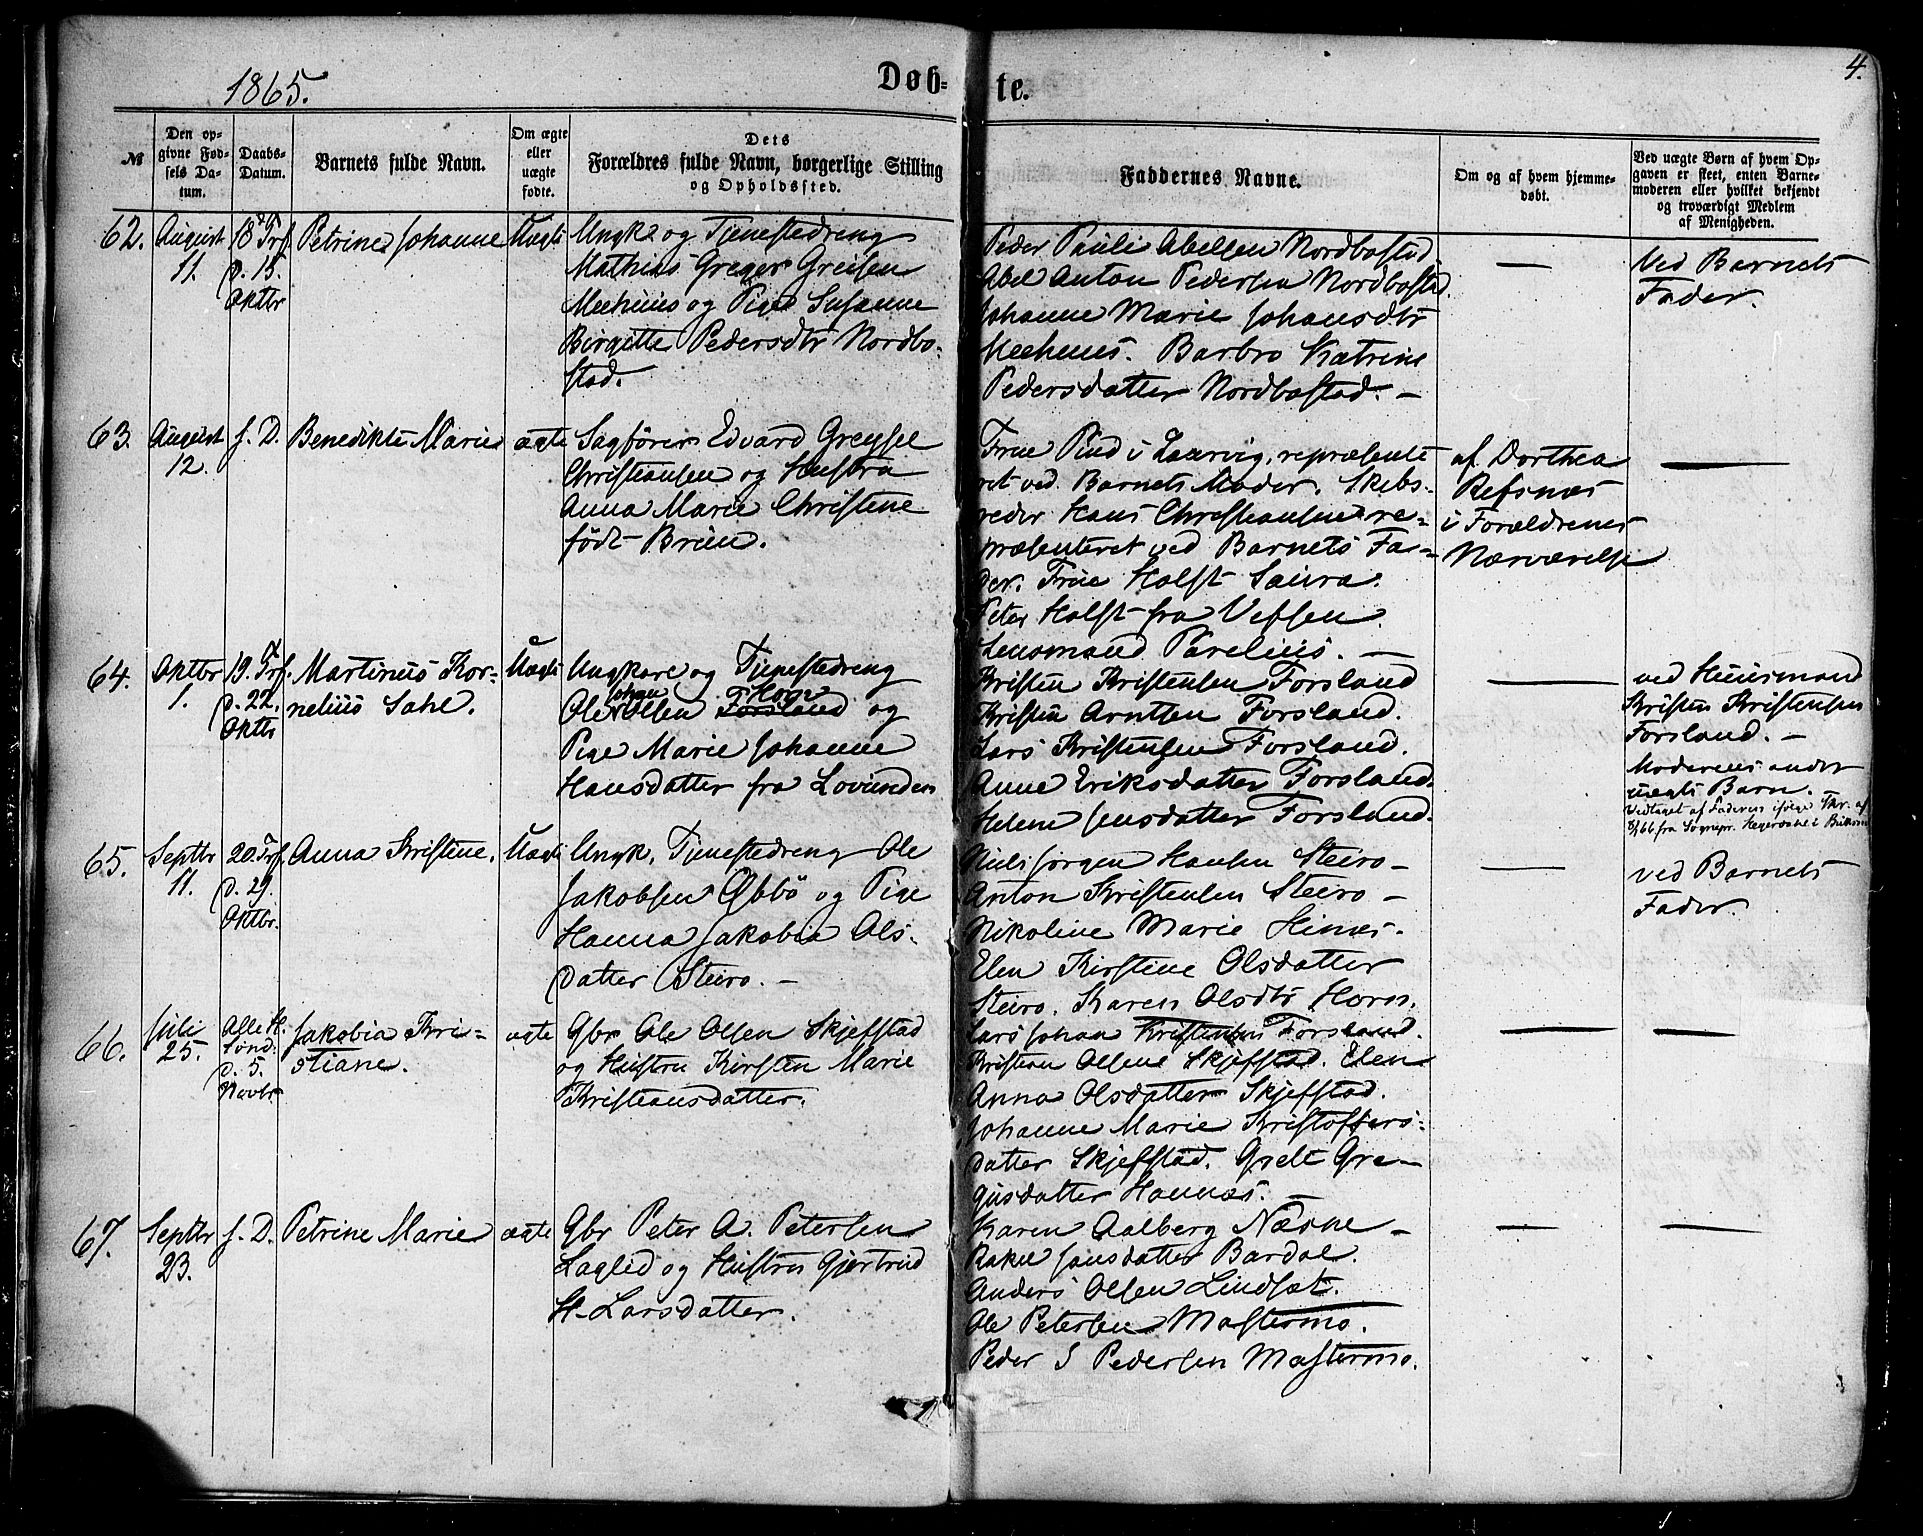 1865.
Døb-
te.
4.
№
Den op-
givne Fød-
sels Da-
tum.
Daabs-
Datum.
Barnets fulde Navn.
Om ægte
eller
uægte
fødte.
Dets
Forældres fulde Navn, borgerlige Stilling
og Opholdssted.
Faddernes Navne.
Om og af hvem hjemme-
døbt.
Ved uægte Børn af hvem Op-
gaven er skeet, enten Barne-
moderen eller hvilket bekjendt
og troværdigt Medlem
af Menigheden.
62.
August
11.
18 Trf.
d. 15.
Oktbr
Petrine Johanne
Uægte
Ungk. og Tjenestedreng
Mathias Greger Greisen
og Pige Susanne
Birgitte Pedersdtr Nordbo-
stad.
Peder Pauli Abelsen Nordbostad
Abel Anton Pedersen Nordbostad.
Johanne Marie Johansdtr
Barbro Katrine
Pedersdatter Nordbostad. –
—
Ved Barnets
Fader.
63.
August
12.
s. D.
Benedikte Marie
ægte
Sagfører Edvard
Christiansen og Hustru
Anna Marie Christine
født Bruun.
Frue Pind i Laurvig, repræsente
ret ved Barnets Moder. Skibs-
reder Hans Christiansen re-
præsenteret ved Barnets Fa-
der. Frue Holst Saura.
Peter Holst fra Vefsen.
Lensmand Parelius. –
af Dorthea
Refsnes
i Forældrenes
Nærværelse
—
64.
Oktbr
1.
19. Trf.
d. 22.
Oktbr
Martinus Kor-
nelius Sahl.
Uægte
Ungkare og Tjenestedreng
Johan Horn
Ole Olsen Forsland og
Pige Marie Johanne
Hansdatter fra Lovunden
Kristen Kristensen Forsland
Kristen Arntsen Forsland.
Lars Kristensen Forsland.
Anne Eriksdatter Forsland.
Helene Jensdatter Forsland.
—
ved Huusmand
Kristen Kristensen
Forsland. –
Moderens andet
uægte Barn.
Vedtaget af Faderen ifølge Skr. af
66 fra Sognepr.
65.
Septbr
11.
20. Trf.
d. 29.
Oktbr.
Anna Kristine.
Uægte
Ungk. Tjenestedreng Ole
Jakobsen Øbbø og Pige
Hanna Jakobia Ols-
datter Steiro. –
Niels Jørgen Hansen Steiro –
Anton Kristensen Steiro –
Nikoline Marie
Elen Kirstine Olsdatter
Steiro. Karen Olsdtr Horn.
—
ved Barnets
Fader.
66.
Juli
25.
Alle H.
Sønd.
d. 5.
Novbr
Jakobia Kri-
stiane.
ægte
Gbr Ole Olsen Skjefstad
og Hustru Kirsten Marie
Kristiansdatter.
Lars Johan Kristensen Forsland.
Kristian Olsen Skjefstad. Elen
Anna Olsdatter Skjefstad.
Johanne Marie Kristoffers-
datter Skjefstad. Gre-
gusdatter Hannæs. –
—
—
67.
Septbr
23.
s. D.
Petrine Marie
ægte
Gbr Peter A. Petersen
Laglid og Hustru Gjertrud
H. Larsdatter.
Karen Aalberg Næsne –
Rakel Jansdatter Bardal.
Anders Olsen Lindset.
Ole Petersen Mastermo.
Peder S Pedersen Mastermo.
—
—